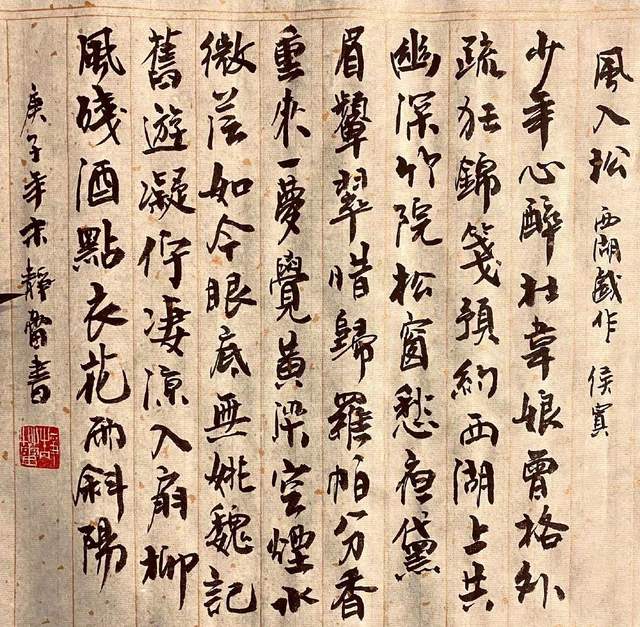 風入松 西湖戲作 侯寘
少年心醉杜韋娘曾格外
疏狂錦箋預約西湖上共
幽深竹院松窗愁夜黛
眉顰翠惜歸羅帕分香
重來一夢覺黃粱空煙水
微茫如今眼底無姚魏記
舊遊凝佇淒涼入扇柳
風殘酒點衣花雨斜陽
庚子年末靜蕾書